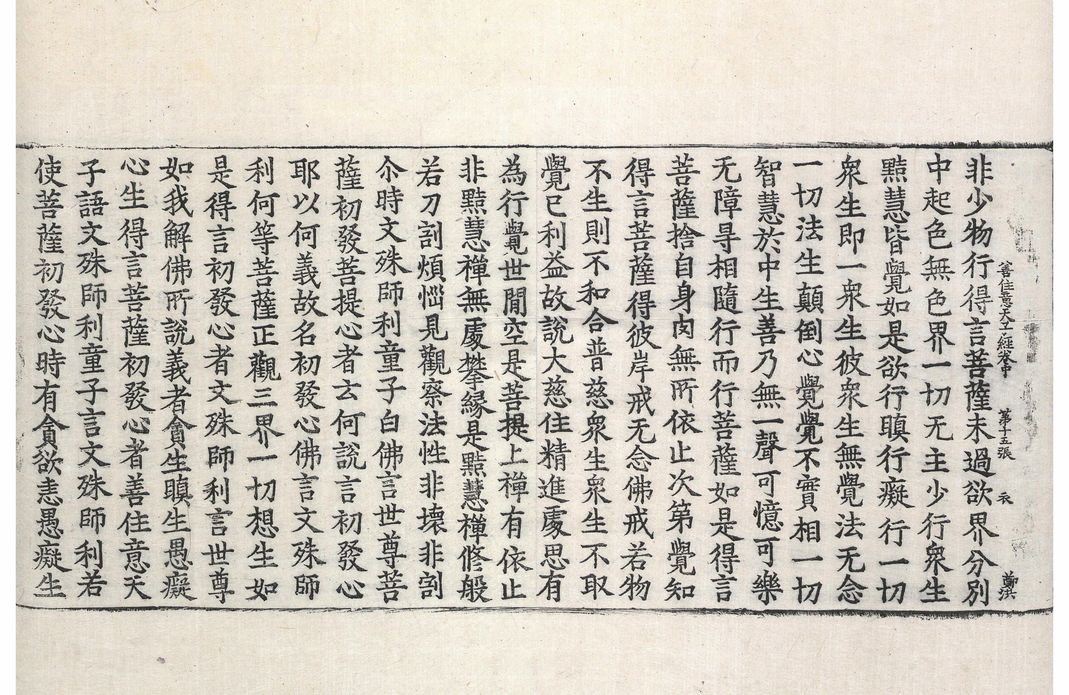 善住意天子經卷中 第十五張 衣
非少物行得言菩薩未過欲界分別
中起色無色界一切无主少行衆生
黠慧皆覺如是欲行瞋行癡行一切
衆生即一衆生彼衆生無覺法无念
一切法生顛倒心覺覺不實相一切
智慧於中生善乃無一聲可憶可樂
无障㝵相隨行而行菩薩如是得言
菩薩捨自身肉無所依止次第覺知
得言菩薩得彼岸戒无念佛戒若物
不生則不和合普慈衆生衆生不取
覺已利益故說大慈住精進處思有
為行覺世閒空是菩提上禪有依止
非黠慧禪無處攀緣是黠慧禪修般
若刀割煩惱見觀察法性非壞非割
尒時文殊師利童子白佛言世尊菩
薩初發菩提心者云何說言初發心
耶以何義故名初發心佛言文殊師
利何等菩薩正觀三界一切想生如
是得言初發心者文殊師利言世尊
如我解佛所說義者貪生瞋生愚癡
心生得言菩薩初發心者善住意天
子語文殊師利童子言文殊師利若
使菩薩初發心時有貪欲恚愚癡生